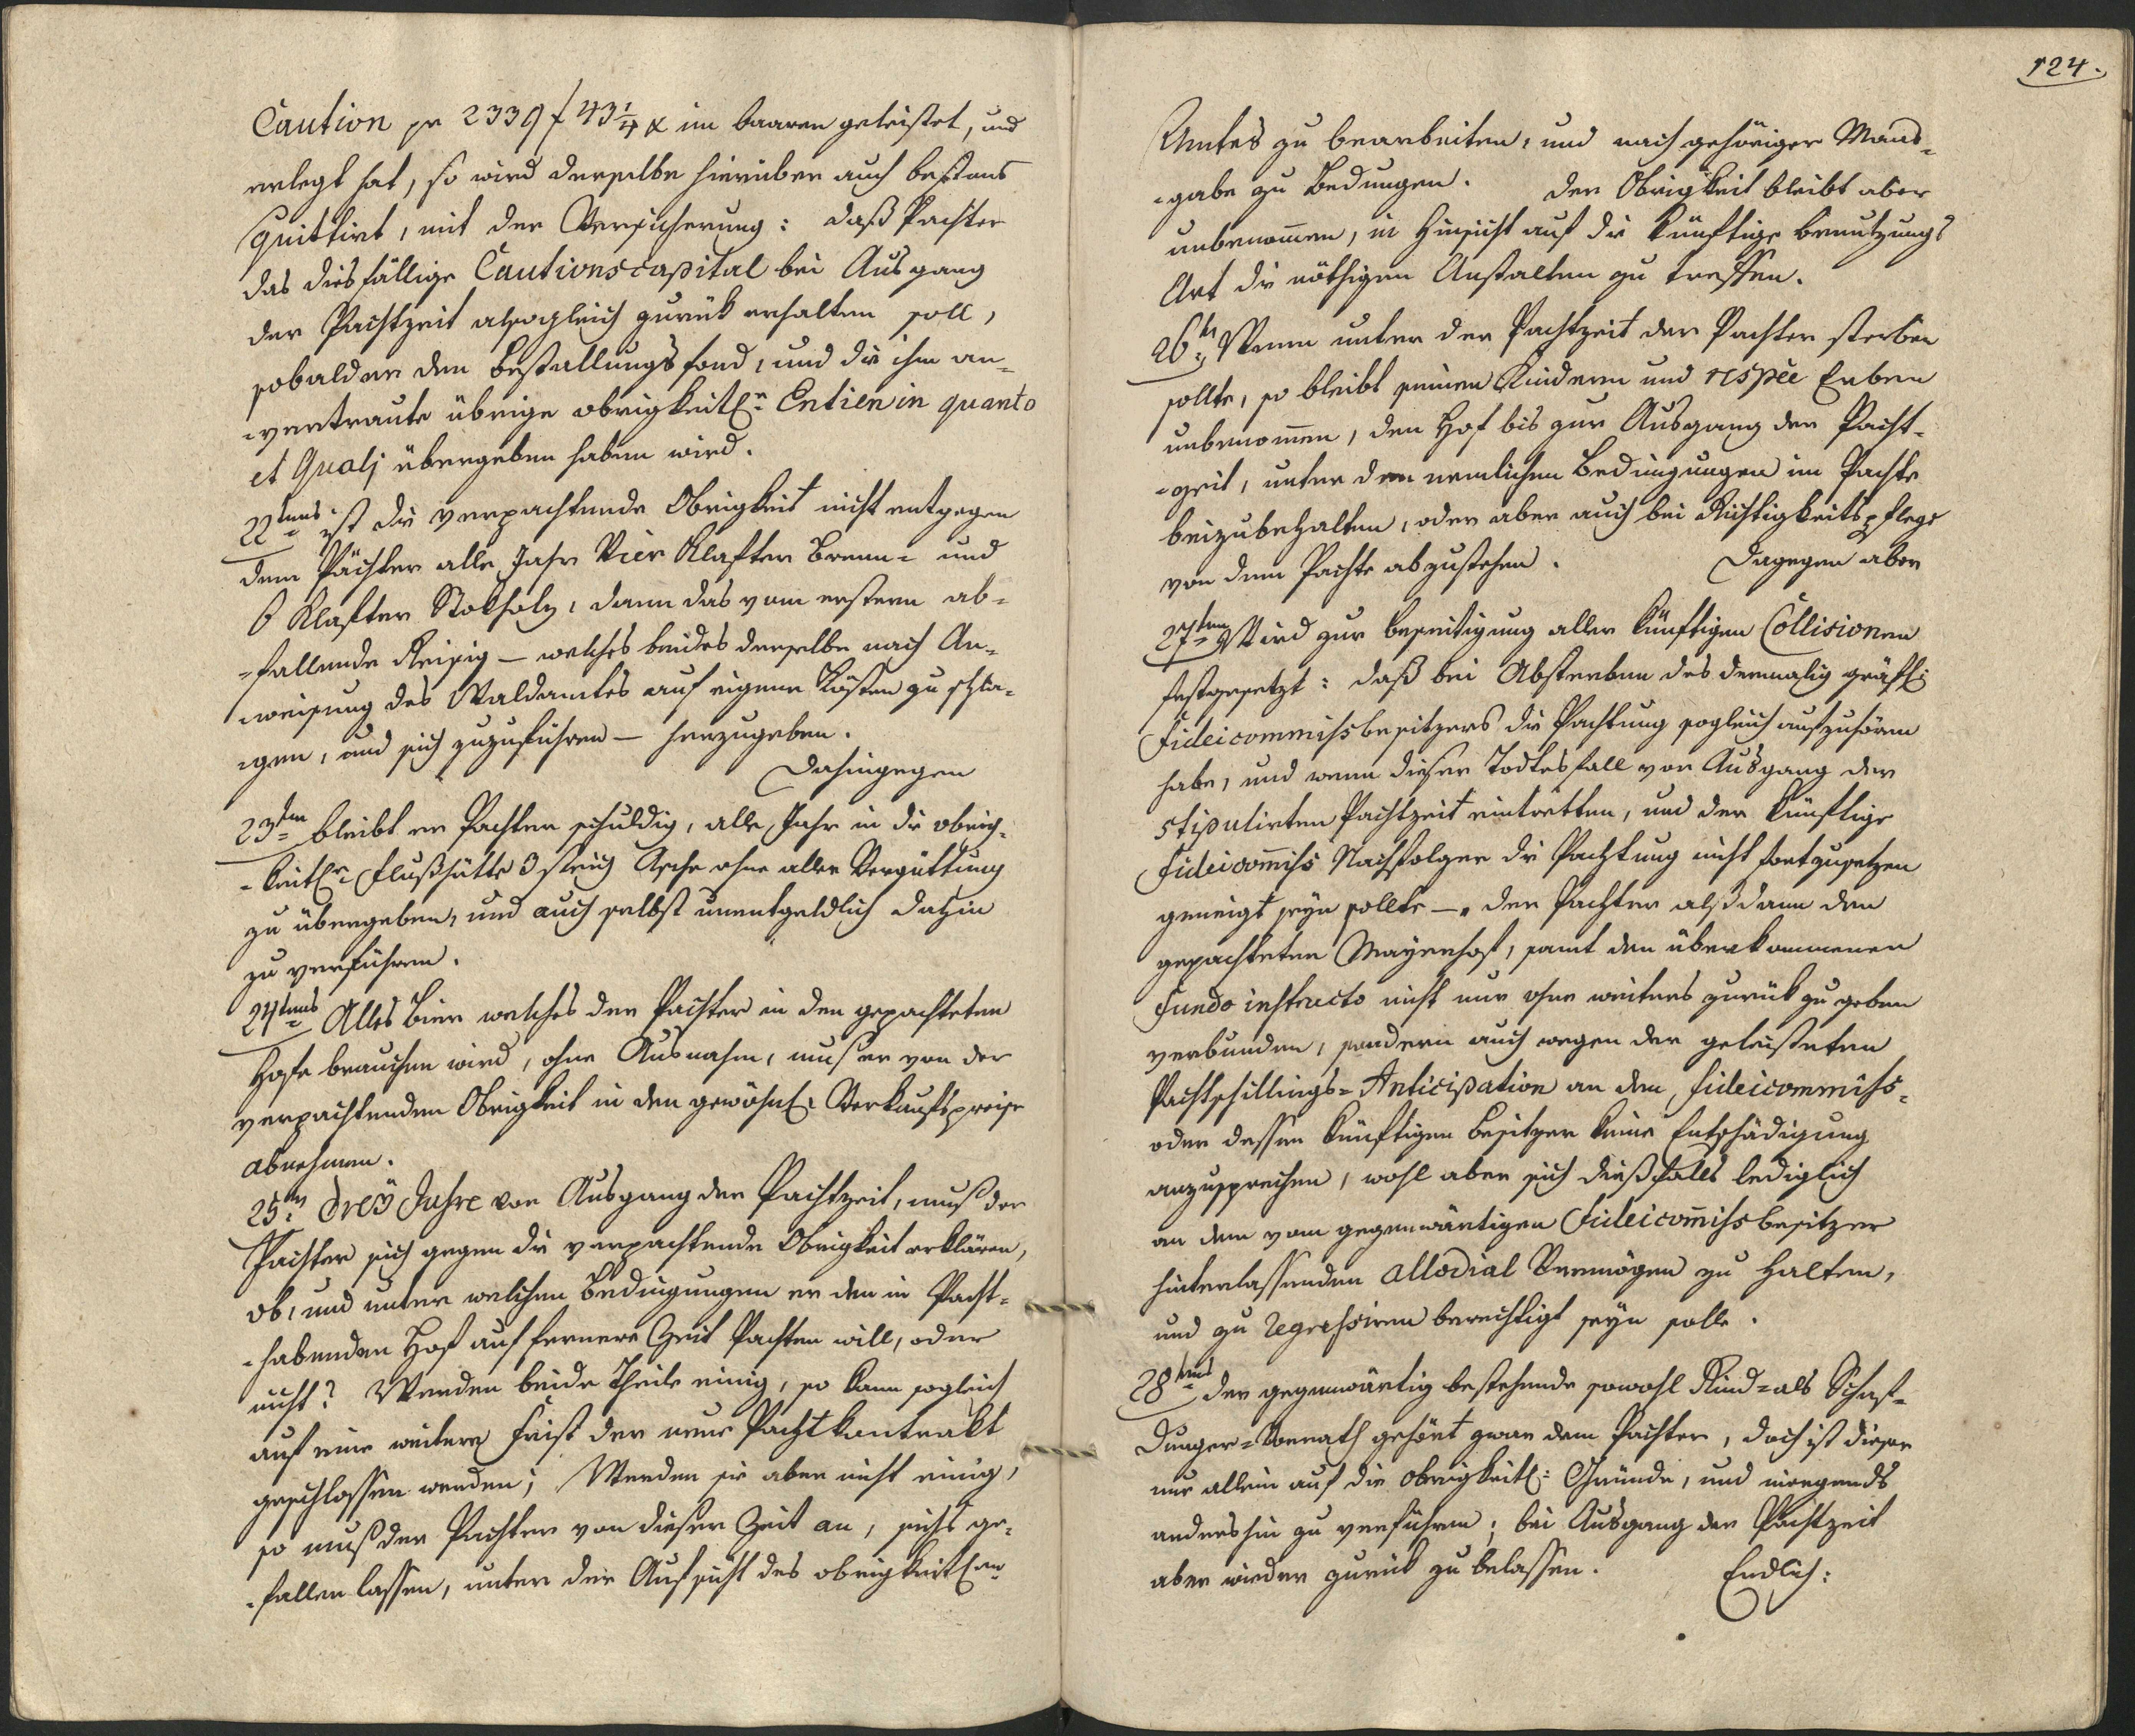 Caution pr 2339 f 43 1/4 x im baaren geleistet, und
erlegt hat, so wird derselbe hierüber auch bestens
quittirt, mit der Versicherung: daß Pachter
das diesfällige Cautionscapital bei Ausgang
der Pachtzeit alsogleich zurük erhalten soll,
sobald er den Bestallungsfond, und die ihm an-
-vertraute übrige obrigkeitln Entien in quanto
et Quali übergeben haben wird.
22tens ist die verpachtende Obrigkeit nicht entgegen
dem Pächter alle Jahr Vier Klafter Brenn- und
6 Klafter Stokholz, dann das vom erstern ab-
-fallende Reisig — welches beides derselbe nach An-
-weisung des Waldamtes auf eigene Kösten zu schla-
-gen, und sich zuzuführen — herzugeben.
Dahingegen
23ten bleibt er Pachter schuldig, alle Jahr in die obrig-
-keitle Flußhütte 3 strich Asche ohne aller Vergüttung
zu übergeben, und auch selbst unentgeldlich dahin
zu verführen.
24tens Alles Bier welches der Pachter in den gepachteten
Hofe brauchen wird, ohne Ausnahm, muß er von der
verpachtenden Obrigkeit in den gewöhnl: Verkaufspreise
abnehmen.
25ns Dreÿ Jahre vor Ausgang der Pachtzeit, muß der
Pachter sich gegen die verpachtende Obrigkeit erklären,
ob, und unter welchen Bedingungen er den in Pacht-
-habenden Hof auf fernere Zeit Pachten will, oder
nicht? Werden beide Theile einig, so kann sogleich
auf eine weitere Frist der neue Pachtkontrakt
geschlossen werden; Werden sie aber nicht einig,
so muß der Pachter von dieser Zeit an, sichs ge-
-fallen lassen, unter der Aufsicht des obrigkeitlen
124.
Amtes zu bearbeiten, und nach gehöriger Maas-
-gabe zu Bedungen. Der Obrigkeit bleibt aber
unbenom̄en, in Hinsicht auf die künftige Benutzungs
Art die nöthigen Anstalten zu treffen.
26tes Wenn unter der Pachtzeit der Pachter sterben
sollte, so bleibt seinen Kindern und respèe Erben
unbenom̄en, den Hof bis zur Ausgang der Pacht-
-zeit, unter den nemlichen Bedingungen im Pachte
beizubehalten, oder aber auch bei Richtigkeitspflege
von dem Pachte abzustehen. Dagegen aber
27tens Wird zur beseitigung aller künftigen Collisionen
festgesetzt: daß bei Absterben des dermalig gräfl:
Fideicommissbesitzers die Pachtung sogleich aufzuhören
habe, und wenn dieser Todtesfall vor Ausgang der
stipulirten Pachtzeit eintretten, und der künftige
Fideicom̄iss Nachfolger die Pachtung nicht fortzusetzen
geneigt seÿn sollte —, der Pachter alsdann den
gepachteten Mayerhof, samt den überkommenen
Fundo instructo nicht nur ohne weiters zurük zu geben
verbunden, sondern auch wegen der geleisteten
Pachtschillings-Anticipation an dem Fideicommiss-
oder dessen künftigen Besitzer keine Entschädigung
anzusprechen, wohl aber sich dießfalls lediglich
an dem vom gegenwärtigen Fideicom̄iss besitzer
hinterlassenden allodial Vermögen zu halten,
und zu Regressiren berechtigt seÿn solle.
28tens der gegenwärtig bestehende sowohl Rind- als Schaf-
Dunger-Vorrath gehört zwar dem Pachter, doch ist dieser
nur allein auf die obrigkeitl: Gründe, und niergends
andershin zu verführen; bei Ausgang der Pachtzeit
aber wieder zurük zu belassen. Endlich: